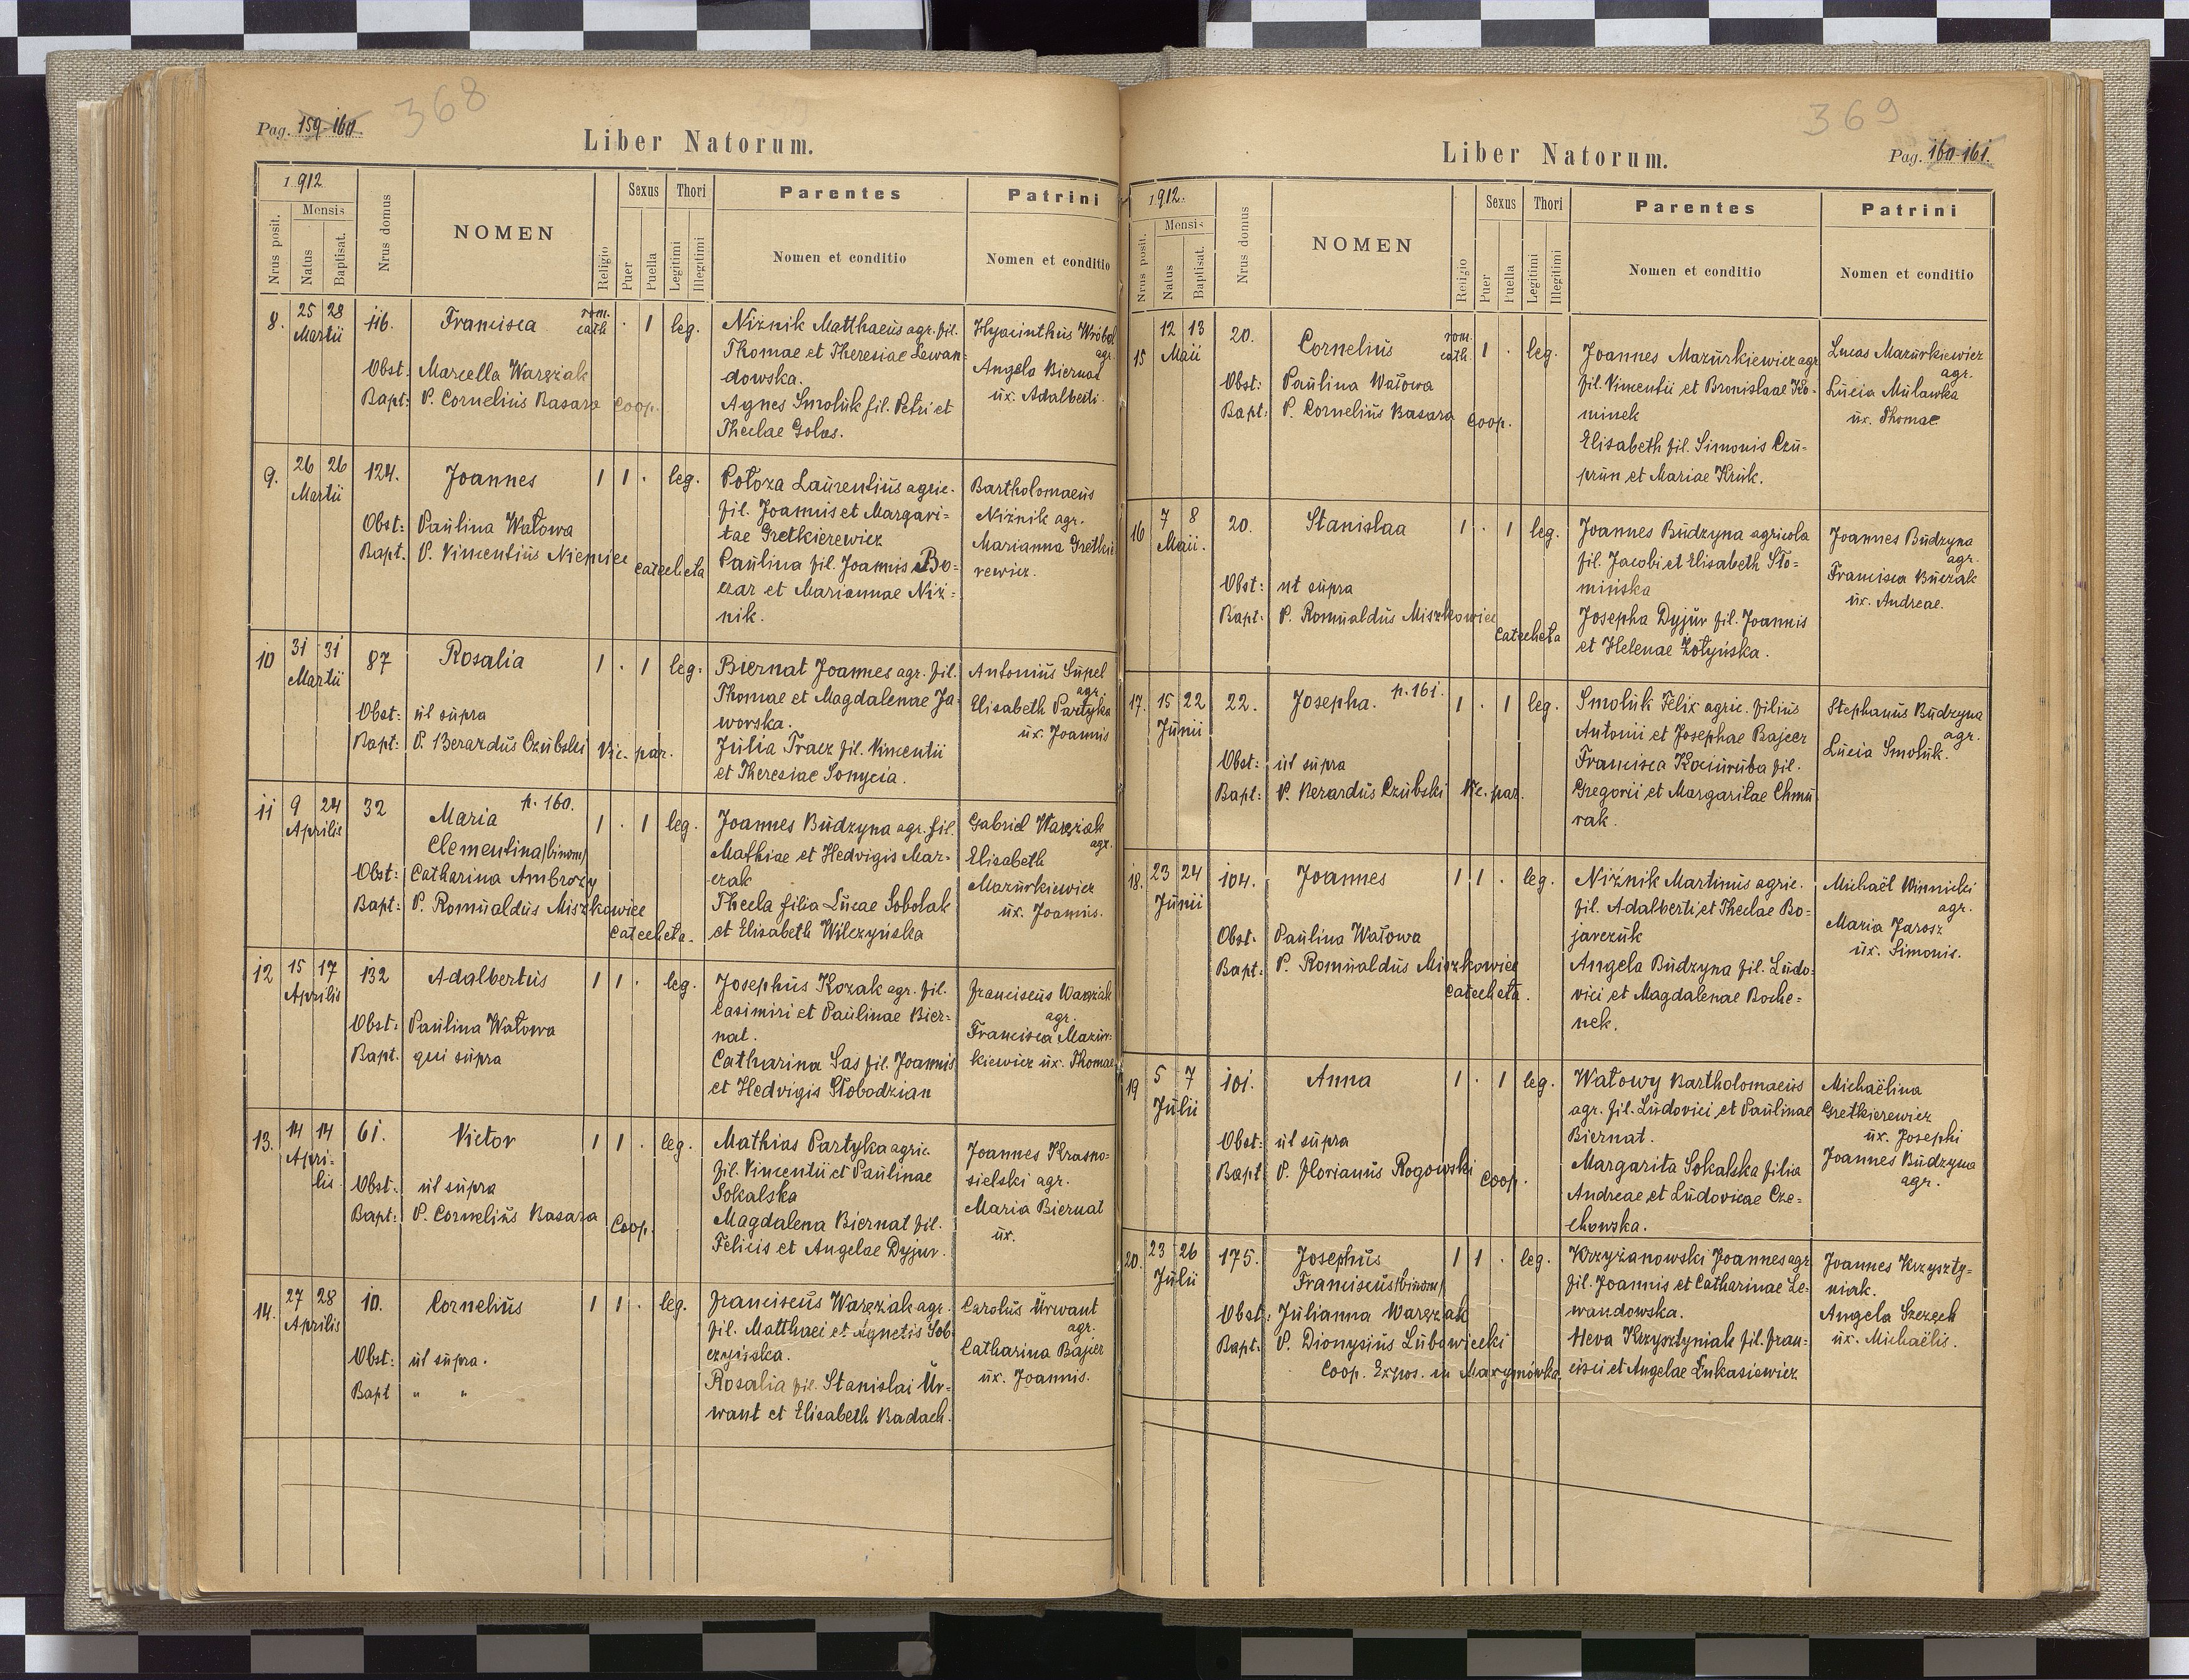 368
Pag. 159-160.
Liber Natorum.
1912
Nrus posit.
Mensis
Natus
Baptisat.
Nrus domus
NOMEN
Religio
Sexus
Puer
Puella
Thori
Legitimi
Illegitimi
Parentes
Nomen et conditio
Patrini
Nomen et conditio
8. 25 28 Martii 116. Francisca rom. cath · 1 leg.
Obst: Marcella Waręziak
Bapt: P. Cornelius Basara coop.
Niżnik Matthaeus agr. fil.
Thomae et Theresiae Lewan-
dowska.
Agnes Smoluk fil. Petri et
Theclae Golas.
Hyacinthus Wróbel
agr.
Angela Biernat
ux. Adalberti
9. 26 26 Martii 124. Joannes 1 1 · leg.
Obst: Paulina Watowa
Bapt. P. Vincentius Niemiec catecheta
Potoza Laurentius agric.
fil. Joannis et Margari-
tae Gretkierewicz
Paulina fil. Joannis Bo-
czar et Mariannae Niż-
nik.
Bartholomaeus
Niżnik agr.
Marianna Gretkie
rewicz.
10 31 31 Martii 87 Rosalia 1 · 1 leg.
Obst: ut supra
Bapt: P. Berardus Czubski Vic. par.
Biernat Joannes agr. fil.
Thomae et Magdalenae Ja-
worska.
Julia Tracz fil. Vincentii
et Theresiae Sonycia.
Antonius Supel
agr.
Elisabeth Partyka
ux. Joannis
11 9 24 Aprilis 32 Maria p. 160. 1 · 1 leg.
Clementina/binom/
Obst: Catharina Ambroży
Bapt: P. Romualdus Miszkowiec
catecheta.
Joannes Budzyna agr. fil.
Mathiae et Hedvigis Mar-
czak
Thecla filia Lucae Sobolak
et Elisabeth Wilczyńska
Gabriel Waręziak
agr.
Elisabeth
Mazurkiewicz
ux. Joannis.
12 15 17 Aprilis 132 Adalbertus 1 1 · leg.
Obst: Paulina Watowa
Bapt. qui supra
Josephus Kozak agr. fil.
Casimiri et Paulinae Bier-
nat.
Catharina Sas fil. Joannis
et Hedvigis Słobodzian
Franciscus Waręziak
agr.
Francisca Mazur-
kiewicz ux. Thomae
13. 14 14 Apri-
lis 61. Victor 1 1 · leg.
Obst: ut supra
Bapt: P. Cornelius Basara Coop.
Mathias Partyka agric.
fil. Vincentii et Paulinae
Sokalska
Magdalena Biernat fil.
Felicis et Angelae Dyjur.
Joannes Krasno-
sielski agr.
Maria Biernat
ux.
14. 27 28 Aprilis 10. Cornelius 1 1 · leg.
Obst: ut supra.
Bapt " "
Franciscus Waręziak agr.
fil. Matthaei et Agnetis Sob-
czyńska.
Rosalia fil. Stanislai Ur-
want et Elisabeth Badach.
Carolus Urwant
agr.
Catharina Bajcer
ux. Joannis.
369
Liber Natorum.
Pag. 160-161.
1912.
Nrus posit.
Mensis
Natus
Baptisat.
Nrus domus
NOMEN
Religio
Sexus
Puer
Puella
Thori
Legitimi
Illegitimi
Parentes
Nomen et conditio
Patrini
Nomen et conditio
15 12 13 Maii 20. Cornelius rom. cath. 1 · leg.
Obst: Paulina Watowa
Bapt: P. Cornelius Basara coop.
Joannes Mazurkiewicz agr
fil. Vincentii et Bronislaae Ko-
minek
Elisabeth fil. Simonis Czu-
prun et Mariae Kruk.
Lucas Mazurkiewicz
agr.
Lucia Mulawka
ux. Thomae
16 7 8 Maii. 20. Stanislaa 1 · 1 leg.
Obst: ut supra
Bapt: P. Romualdus Miszkowiec
catecheta
Joannes Budzyna agricola
fil. Jacobi et Elisabeth Sło-
mińska
Josepha Dyjur fil. Joannis
et Helenae Żołyńska.
Joannes Budzyna
agr.
Francisca Buczak
ux. Andreae.
17. 15 22 Junii 22. Josepha. p. 161. 1 · 1 leg.
Obst: ut supra
Bapt: P. Berardus Czubski Vic. par.
Smoluk Felix agric. filius
Antonii et Josephae Bajcer
Francisca Kociuruba fil.
Gregorii et Margaritae Chmu
rak.
Stephanus Budzyna
agr.
Lucia Smoluk.
18. 23 24 Junii 104. Joannes 1 1 · leg.
Obst: Paulina Watowa
Bapt: P. Romualdus Miszkowiec
catecheta.
Niżnik Martinus agric.
fil. Adalberti et Theclae Bo-
jarczuk
Angela Budzyna fil. Ludo-
vici et Magdalenae Boche-
nek.
Michaël Winnicki
agr.
Maria Jarosz
ux. Simonis.
19 5 7 Julii 101. Anna 1 · 1 leg.
Obst: ut supra
Bapt P. Florianus Rogowski coop.
Watowy Bartholomaeus
agr. fil. Ludovici et Paulinae
Biernat.
Margarita Sokalska filia
Andreae et Ludovicae Cze-
chowska.
Michaëlina
Gretkierewicz
ux. Josephi
Joannes Budzyna
agr.
20. 23 26 Julii 175. Josephus 1 1 · leg.
Franciscus/binom/
Obst: Julianna Waręziak
Bapt: P. Dionysius Lubowiecki
Coop. Expos. in Maxymówka
Krzyżanowski Joannes agr
fil. Joannis et Catharinae Le-
wandowska.
Heva Krzysztyniak fil. Fran-
cisci et Angelae Łukasiewicz
Joannes Krzyszty-
niak.
Angela Szczęch
ux. Michaëlis.